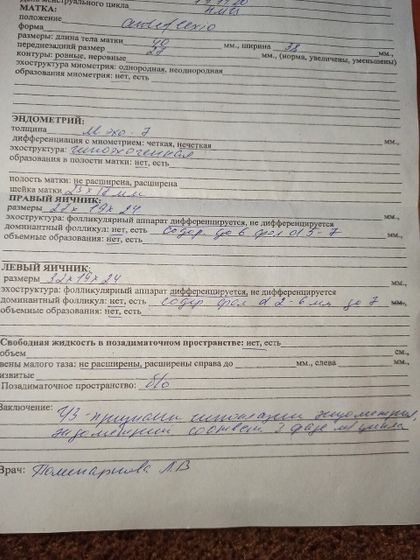 менструального цикла
МАТКА:
положение anteflexio
форма
размеры: длина тела матки 40 мм., ширина 38 мм.,
переднезадний размер 29 мм., (норма, увеличены, уменьшены)
контуры: ровные, неровные
эхоструктура миометрия: однородная, неоднородная
образования миометрия: нет, есть
ЭНДОМЕТРИЙ:
толщина М эхо - 7 мм.,
дифференциация с миометрием: четкая, нечеткая
эхоструктура:
образования в полости матки: нет, есть
полость матки: не расширена, расширена
шейка матки 25 х 18 мм
ПРАВЫЙ ЯИЧНИК:
размеры х 19 х 24
эхоструктура: фолликулярный аппарат дифференцируется, не дифференцируется
доминантный фолликул: нет, есть содер до 6 фол d 5-7
объемные образования: нет, есть
ЛЕВЫЙ ЯИЧНИК:
размеры 32 х 19 х 24
эхоструктура: фолликулярный аппарат дифференцируется, не дифференцируется
доминантный фолликул: нет, есть содер фол d 2-6 мм до 7
объемные образования: нет, есть
Свободная жидкость в позадиматочном пространстве: нет, есть
объем см.,
вены малого таза: не расширены, расширены справа до мм., слева мм.,
извитые
Позадиматочное пространство: б/о
Заключение: УЗ-признаки гипоплазии эндометрия,
эндометрий соответ 2 фазе м/цикла
Врач: Л.В